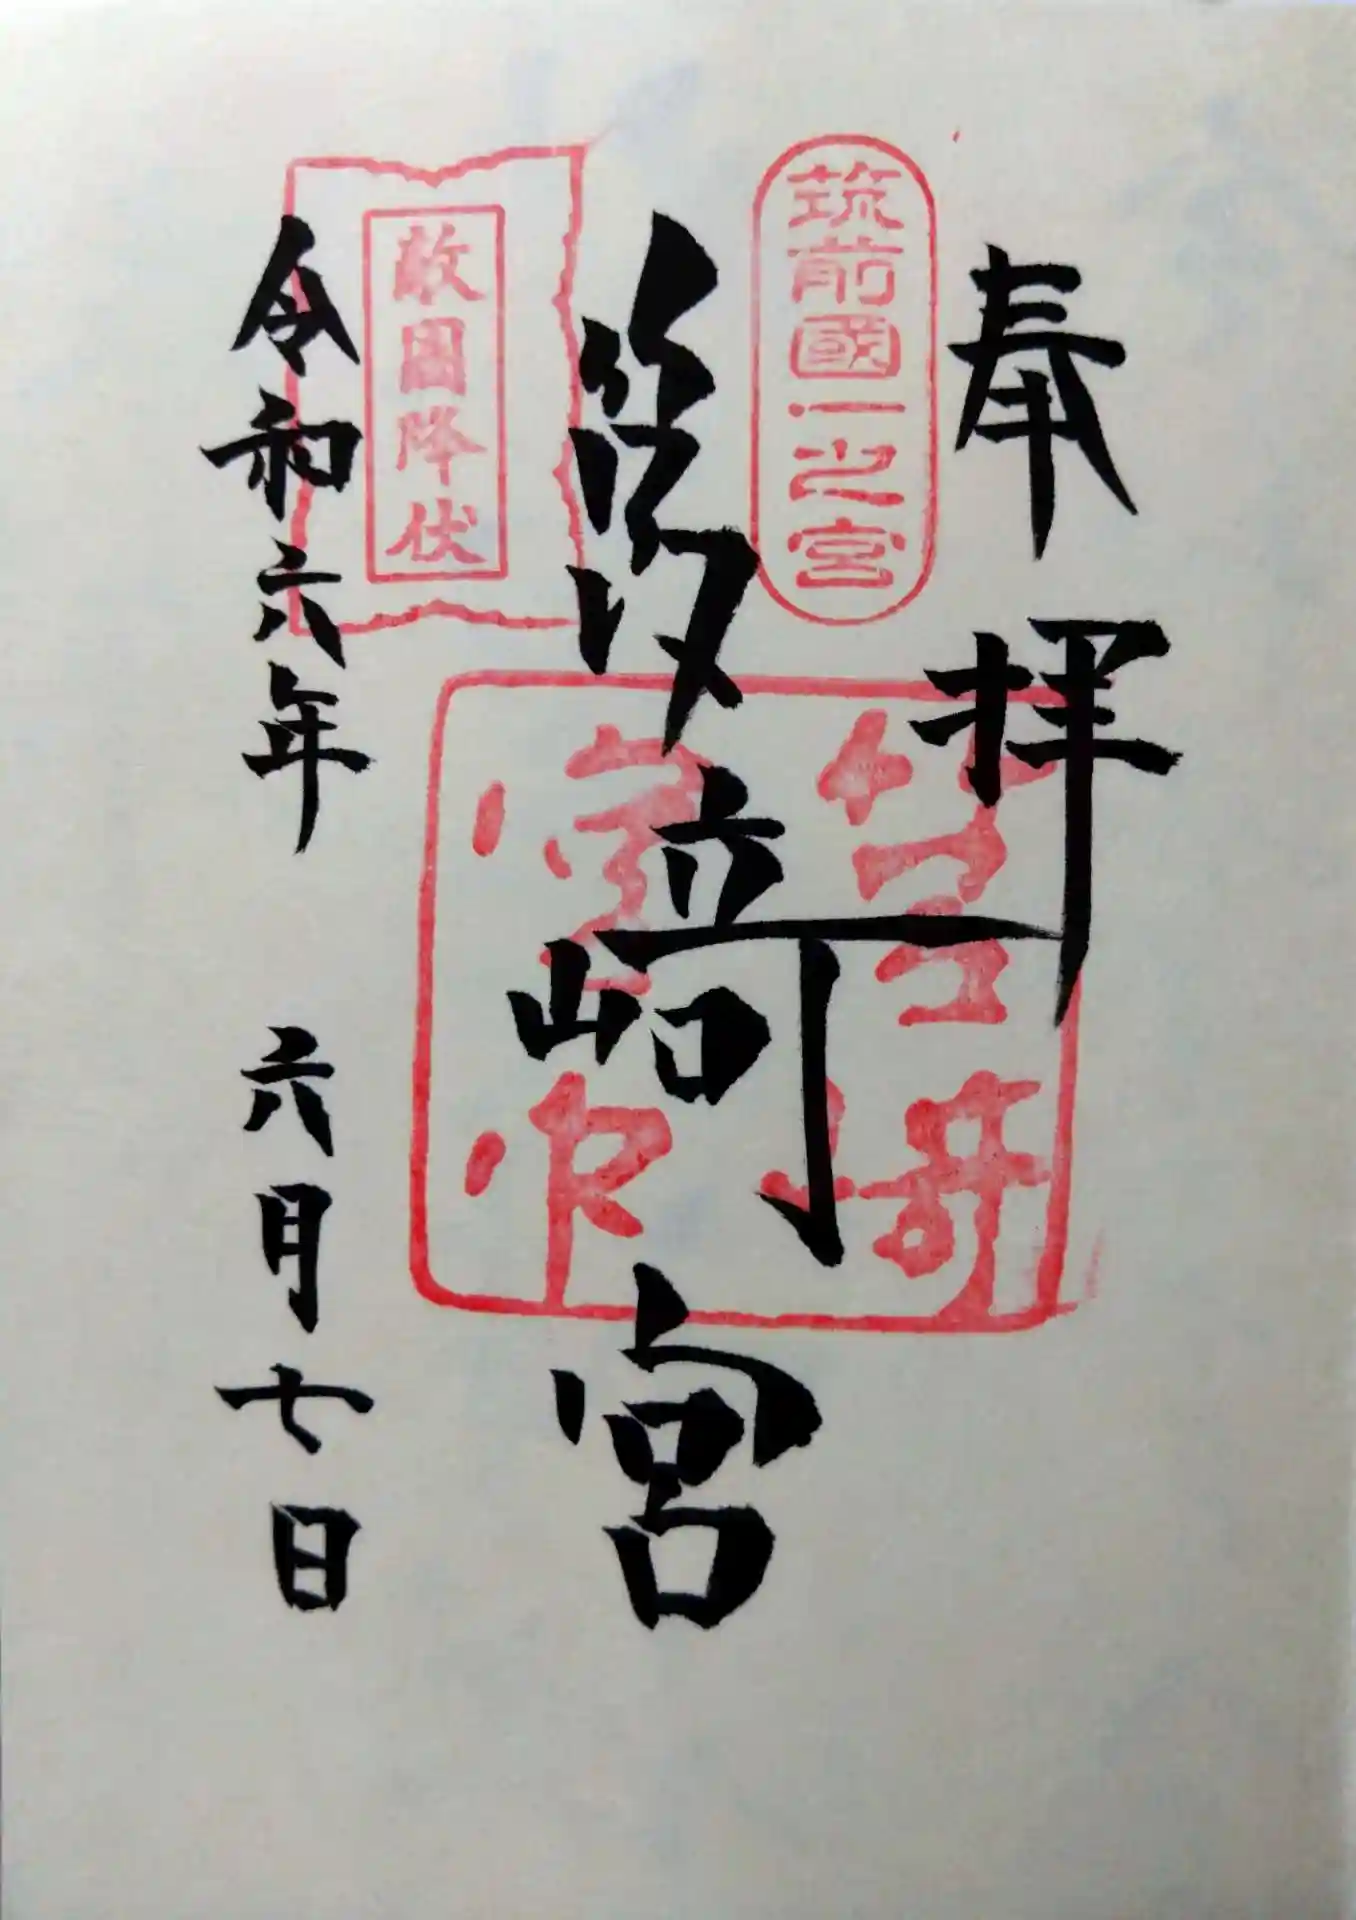 奉拝
筑前國一之宮
筥崎宮
筥崎宮印
敵國降伏
令和六年 六月七日